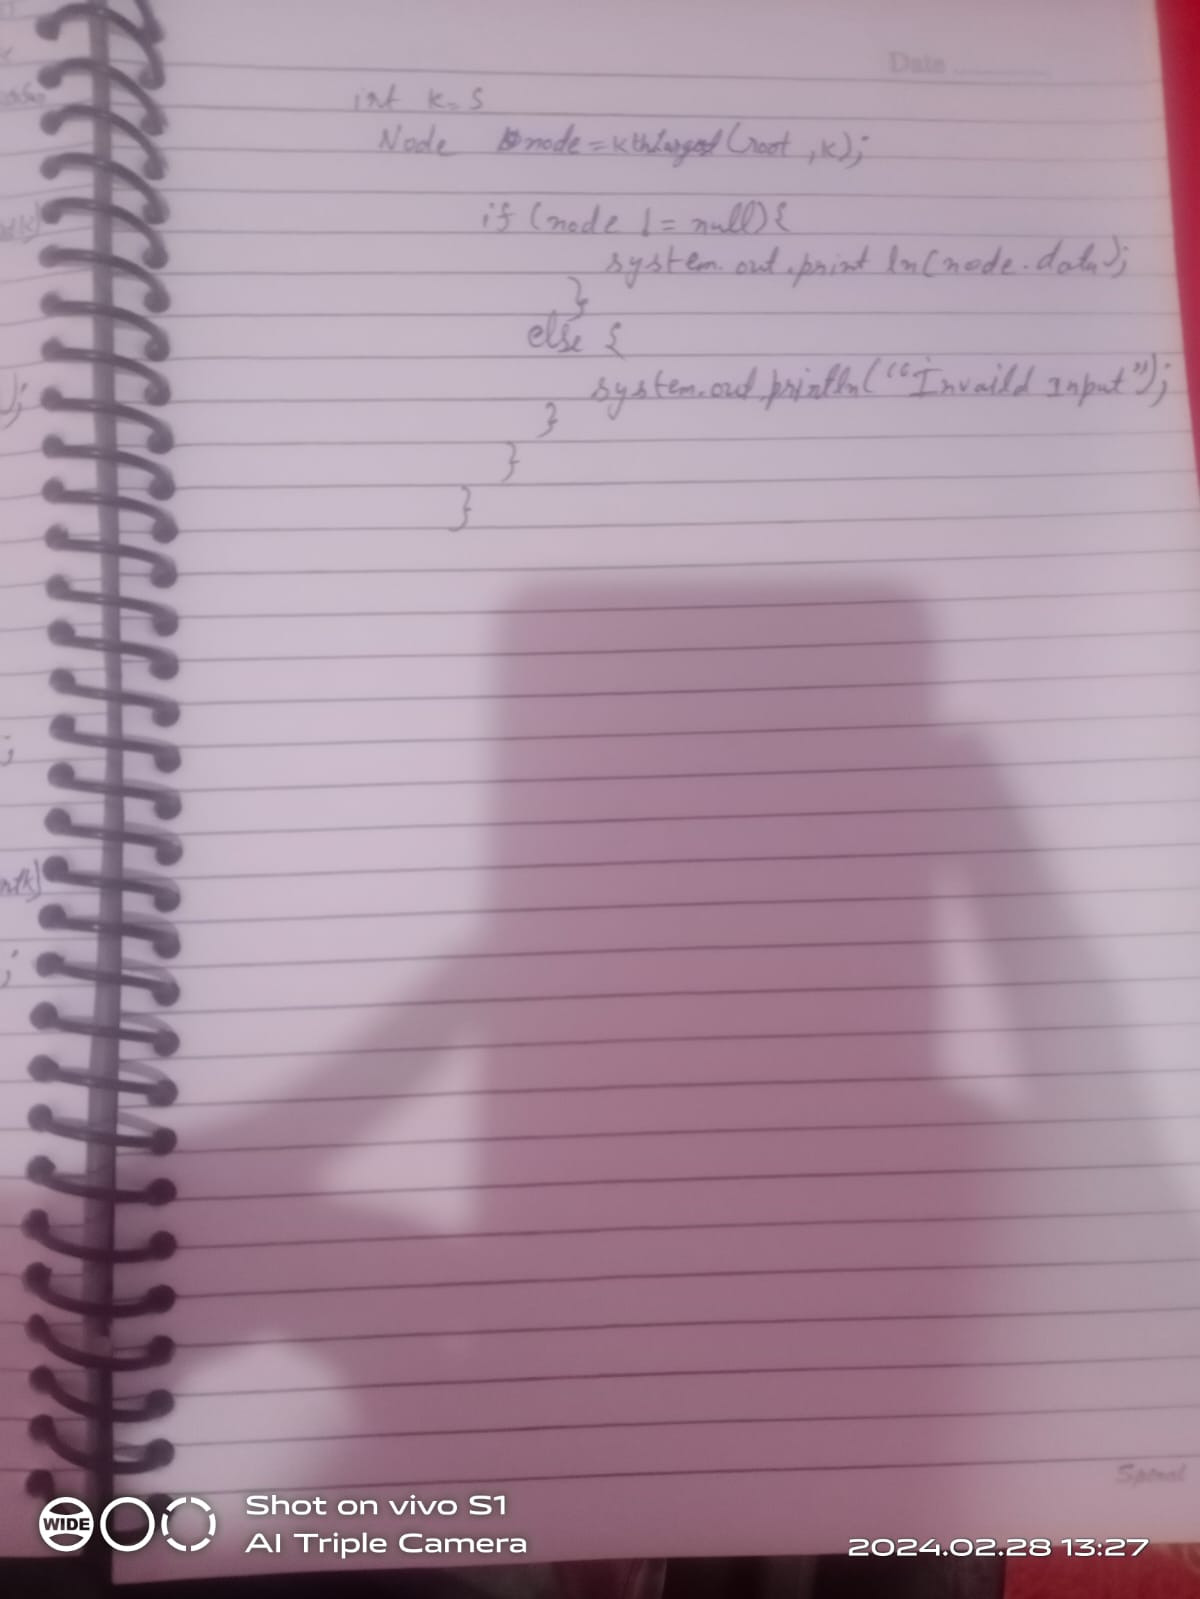 Date
int k = 5
Node node = kthLargest (root , k);
if (node != null) {
system. out. print ln (node. data);
}
else {
system. out. println ( "Invaild Input");
}
}
}
;
;
;
Shot on vivo S1
WIDE
AI Triple Camera
2024.02.28 13:27